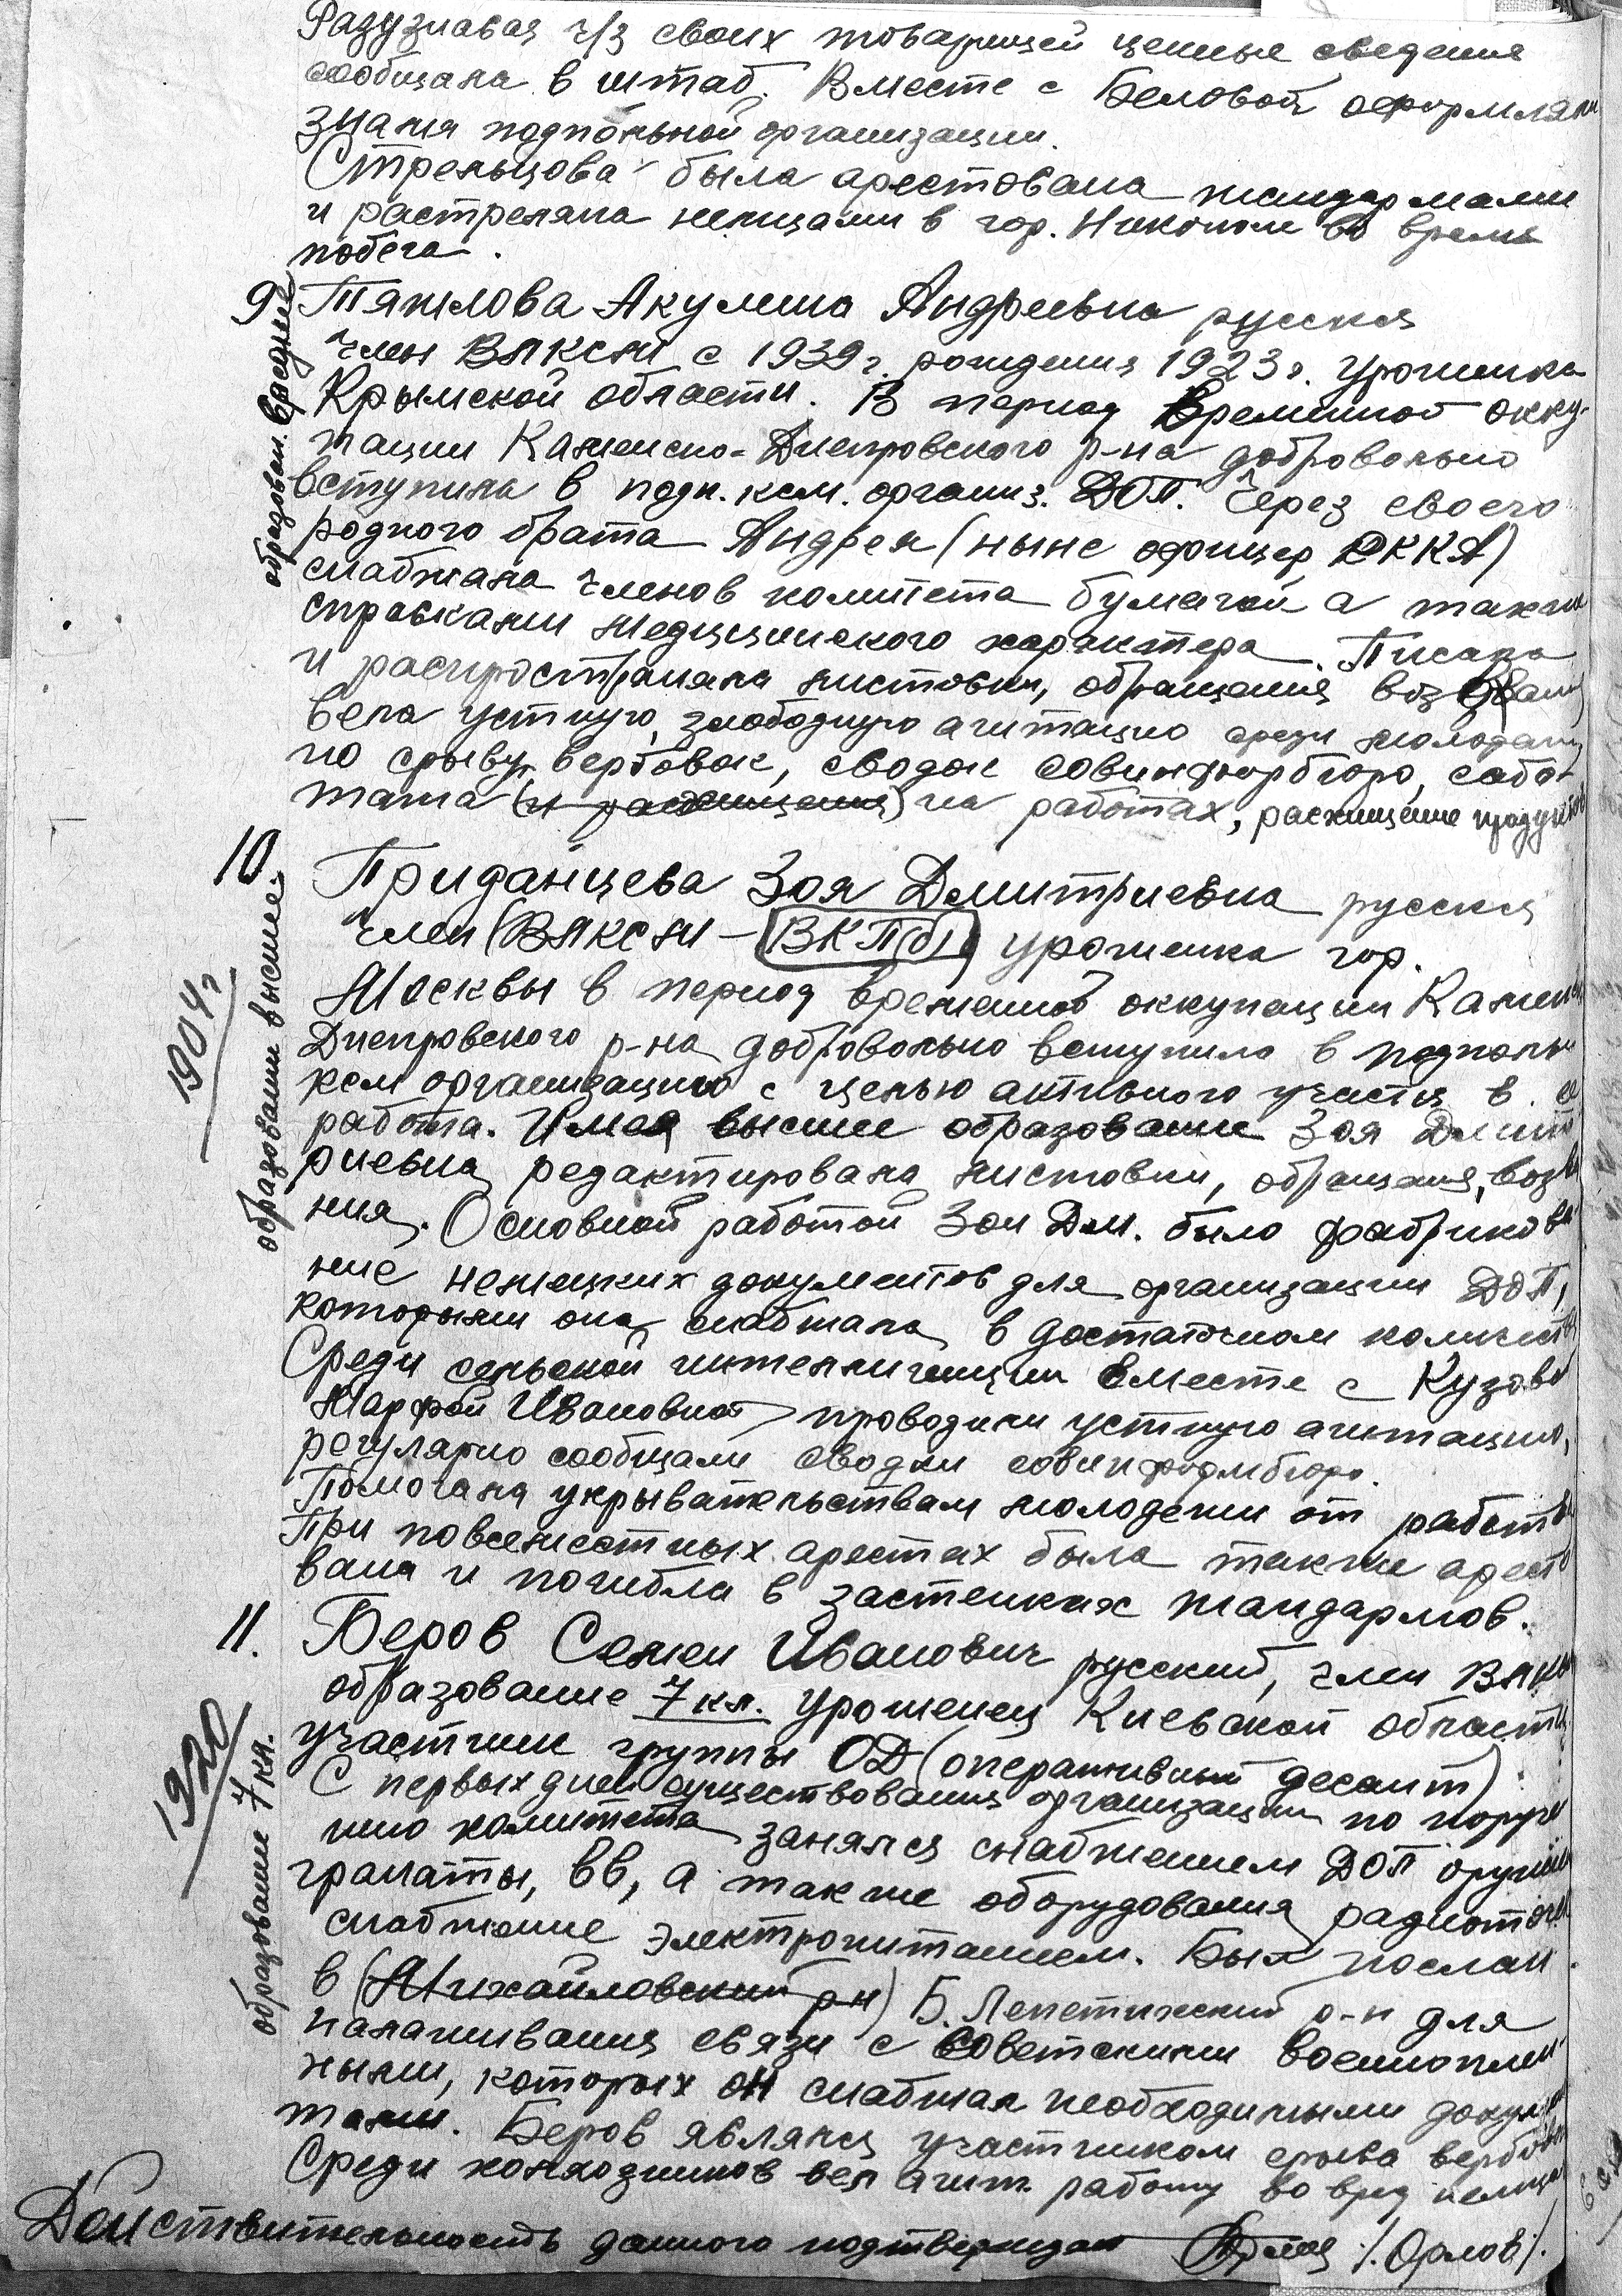 Разузнавая ч/з своих товарищей ценные сведения
сообщала в штаб. Вместе с Беловой оформляли
знамя подпольной организации.
Стрельцова была арестована жандармами
и растреляна немцами в гор. Никополе во время
побега.
9 Тяжлова Акулина Андреевна русская
член ВЛКСМ с 1939г. рождения 1923г. урожинка
Крымской области. В период временной окку-
пации Каменско-Днепровского р-на добровольно
вступила в подп. ком. организ. ДОП. Через своего
родного брата Андрея (ныне офицер РККА)
снабжала членов комитета бумагой а также
справками медицинского характера. Писала
и распространяла листовки, обращения воззвания
вела устную, злободную агитацию среди молодежи
по срыву вербовок, сводок совинформбюро, сабо-
тажа (и расхищения) на работах, расхищение продуктов
образован. среднее
10. Приданцева Зоя Дмитриевна русская
член (ВЛКСМ – ВКП(б)) уроженка гор.
Москвы в период временной оккупации Камен
Днепровского р-на добровольно вступила в подполь
ком организацию с целью активного участия в ее
работа. Имея высшее образование Зоя Дмит
риевна редактировала листовки, обращения, возва
ния. Основной работой Зои Дм. было фабрикова
ние немецких документов для организации ДОП,
которыми она снабжала в достаточном количеств
Среди сельской интеллигенции вместе с Кузово
Марфой Ивановной проводили устную агитацию,
регулярно сообщали сводки совинформбюро.
Помогала укрывательствам молодежи от рабства
При повсеместных арестах была также аресто
вана и погибла в застенках жандармов.
1904г
образование высшее
11. Беров Семен Иванович русский, член ВЛКСМ
образование 7 кл. уроженец Киевской области
участник группы ОД (оперативный десант)
С первых дней существования организации по поруче
нию комитета занялся снабжением ДОП оружием
гранаты, вв, а также оборудования радиоточек
снабжение электропитанием. Был послан
в (Михайловский рн) Б. Лепетихский р-н для
налаживания связи с советскими военноплен-
ными, которых он снабжал необходимыми докумен
тами. Беров являлся участником срыва вербовки
Среди колхозников вел агит. работу во вред немцам
1920
образование 7 кл.
Действительность данного подтверждаю /Орлов/.